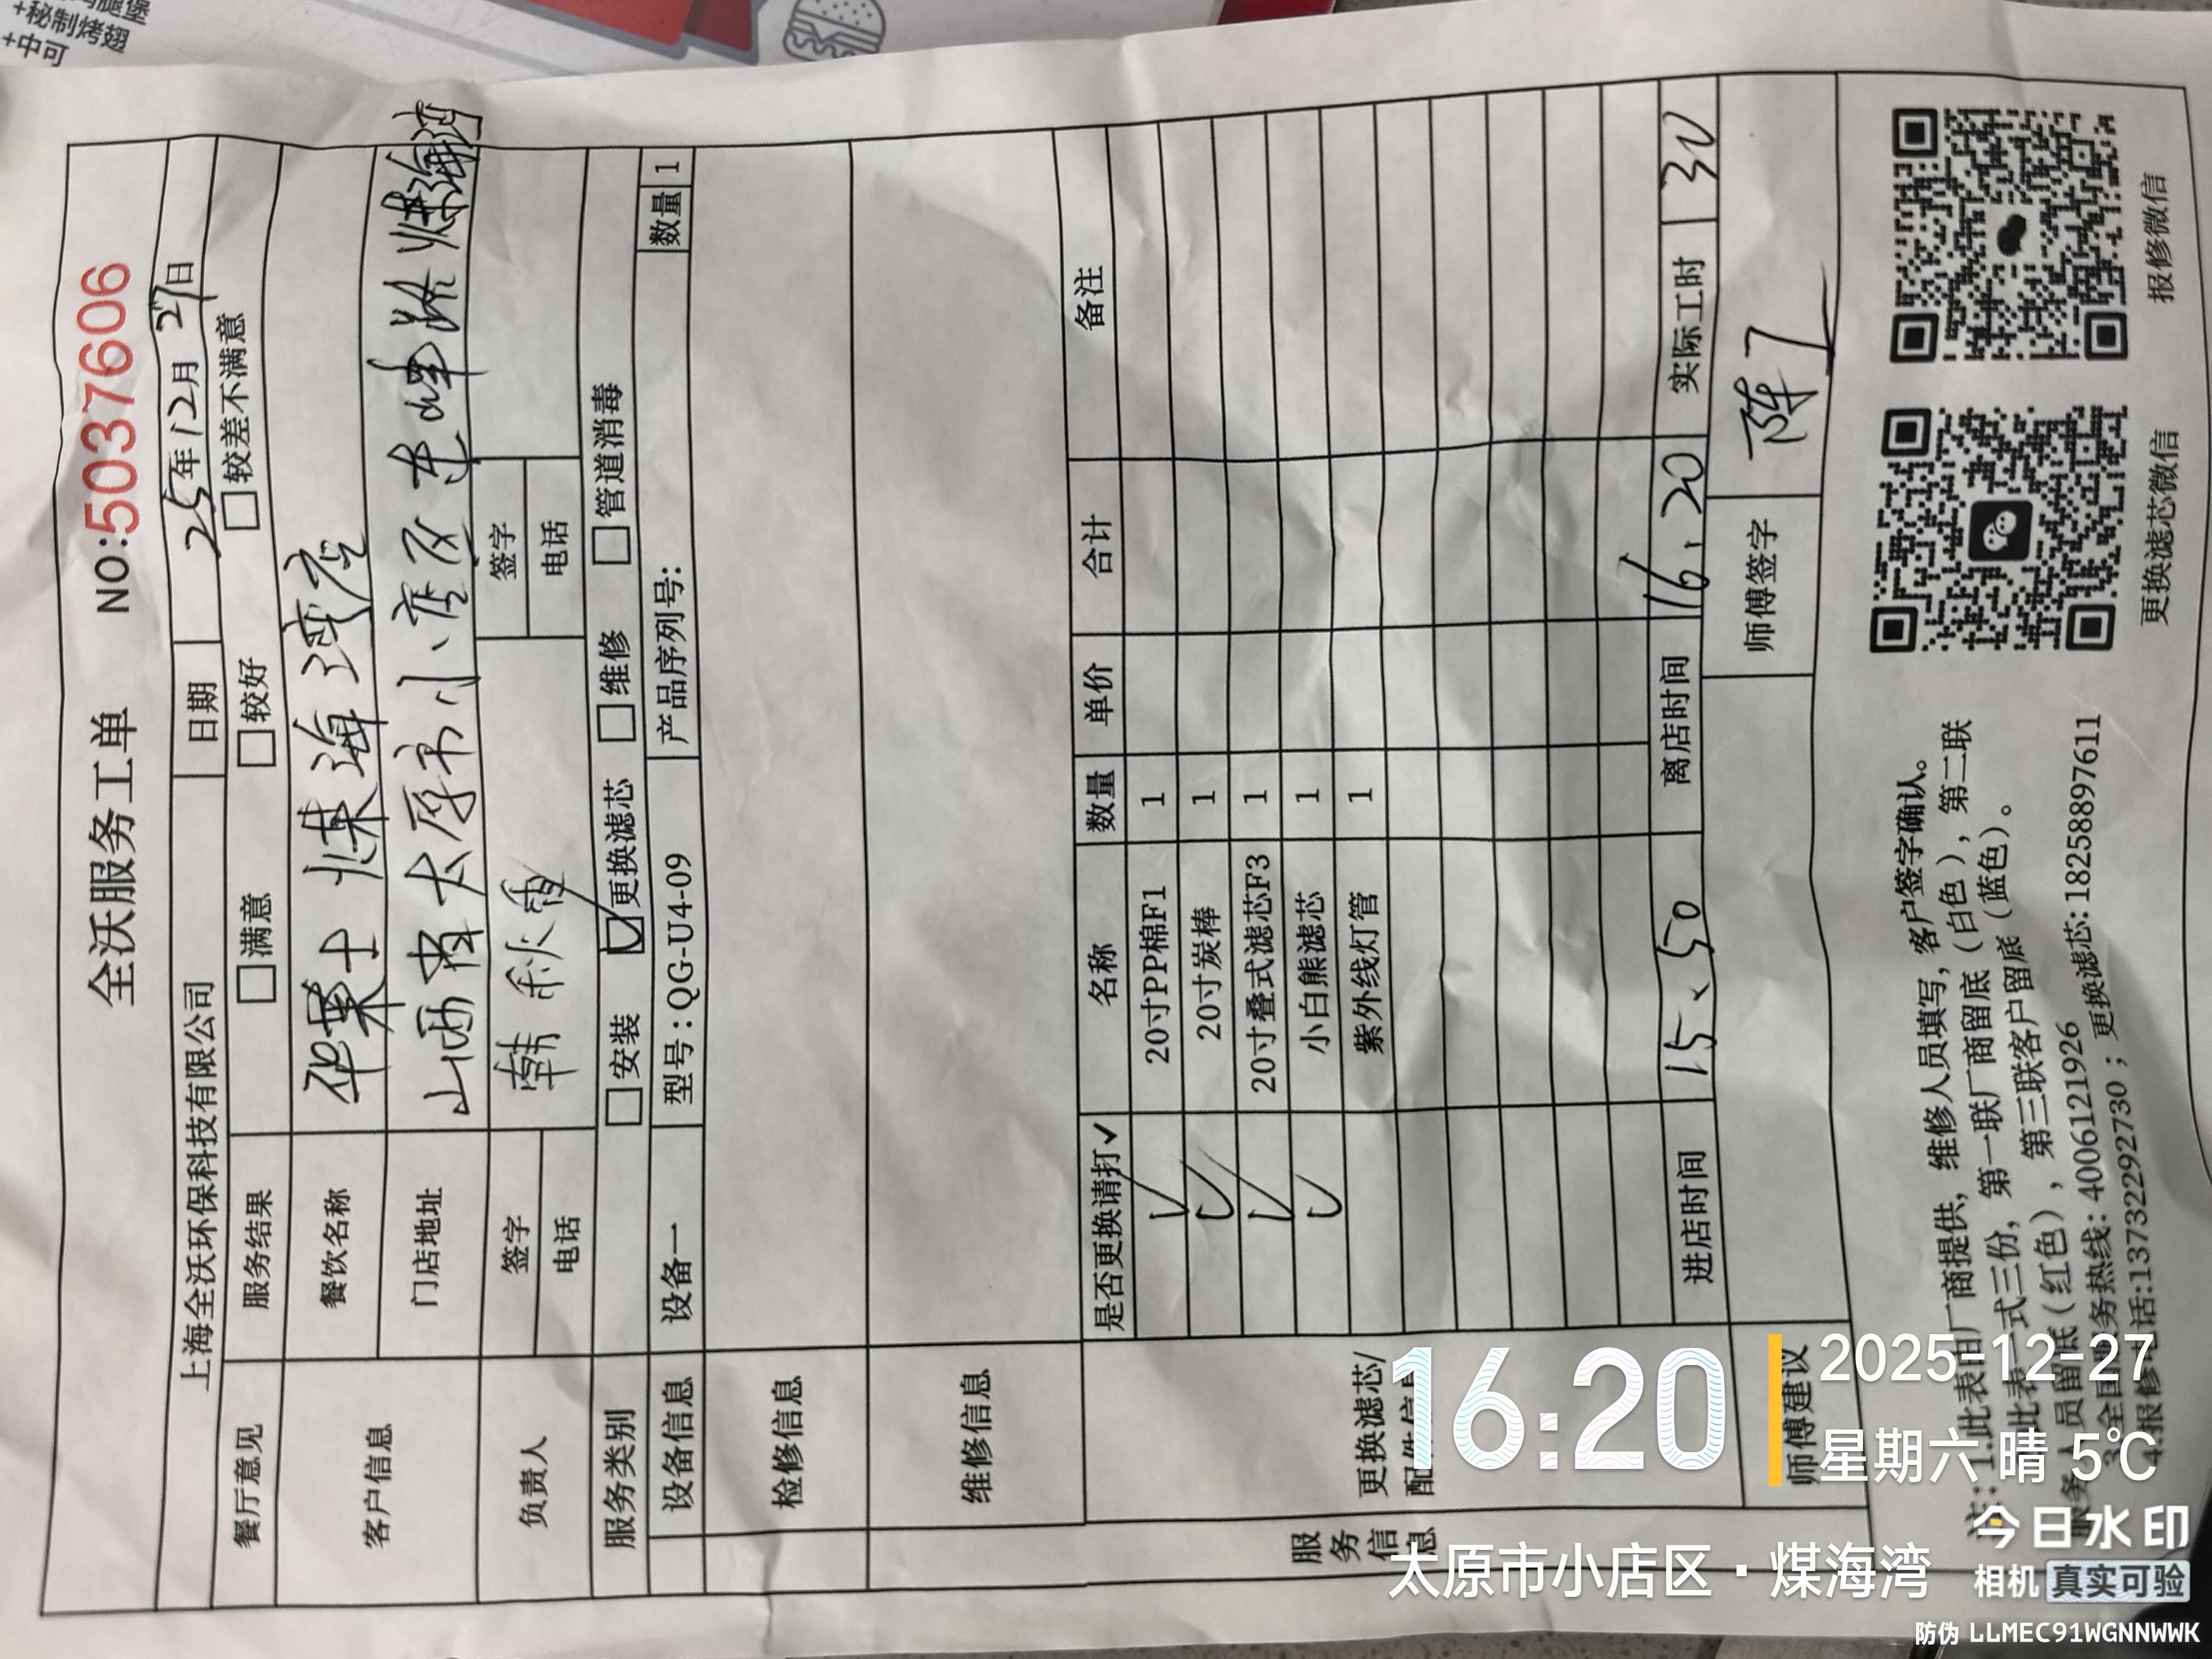 +秘制烤翅
+中可
全沃服务工单 NO:5037606
上海全沃环保科技有限公司 日期 25年12月27日
餐厅意见 服务结果 满意 较好 较差不满意
客户信息 餐饮名称 华莱士煤海湾店
门店地址 山西省太原市小店区 煤海湾
负责人 签字 韩秋香 签字
电话 电话
服务类别 安装 更换滤芯 维修 管道消毒
设备信息 设备一 型号:QG-U4-09 产品序列号: 数量 1
检修信息
维修信息
服务信息 更换滤芯/
是否更换请打✓ 名称 数量 单价 合计 备注
✓ 20寸PP棉F1 1
✓ 20寸炭棒 1
✓ 20寸叠式滤芯F3 1
✓ 小白熊滤芯 1
紫外线灯管 1
进店时间 15:50 离店时间 16:20 实际工时 30
师傅建议 师傅签字
注:1.此表由厂商提供,维修人员填写,客户签字确认。
此表一式三份,第一联厂商留底(白色),第二联
服务人员留底(红色),第三联客户留底(蓝色)。
3.全国服务热线:4006121926
4.报修电话:13732292730;更换滤芯:18258897611
更换滤芯微信
报修微信
16:20
2025-12-27
星期六 晴 5°C
太原市小店区·煤海湾
今日水印
相机 真实可验
防伪 LLMEC91WGNNWWK